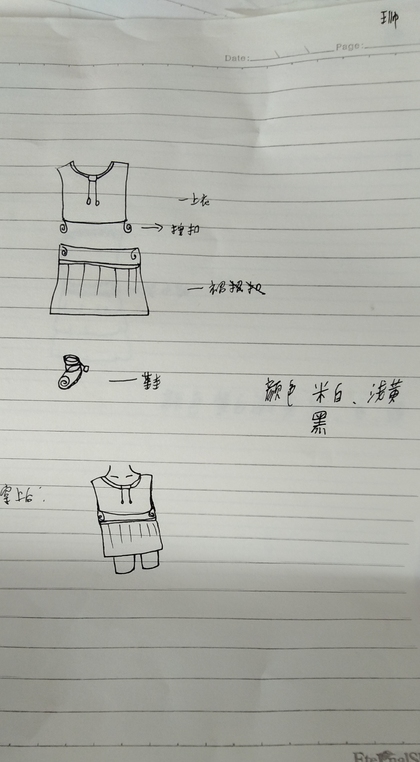 王帅
Date: Page:
一上衣
→ 撞扣
鞋
颜色 米白、浅黄
黑
穿上后: